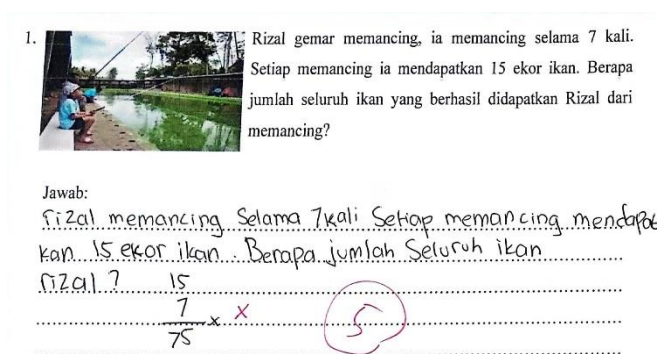 1. Rizal gemar memancing, ia memancing selama 7 kali.
Setiap memancing ia mendapatkan 15 ekor ikan. Berapa
jumlah seluruh ikan yang berhasil didapatkan Rizal dari
memancing?
Jawab:
rizal memancing Selama 7kali Setiap memancing mendapat
kan 15 ekor ikan. Berapa jumlah Seluruh ikan
rizal?
15
7 x x
75
5